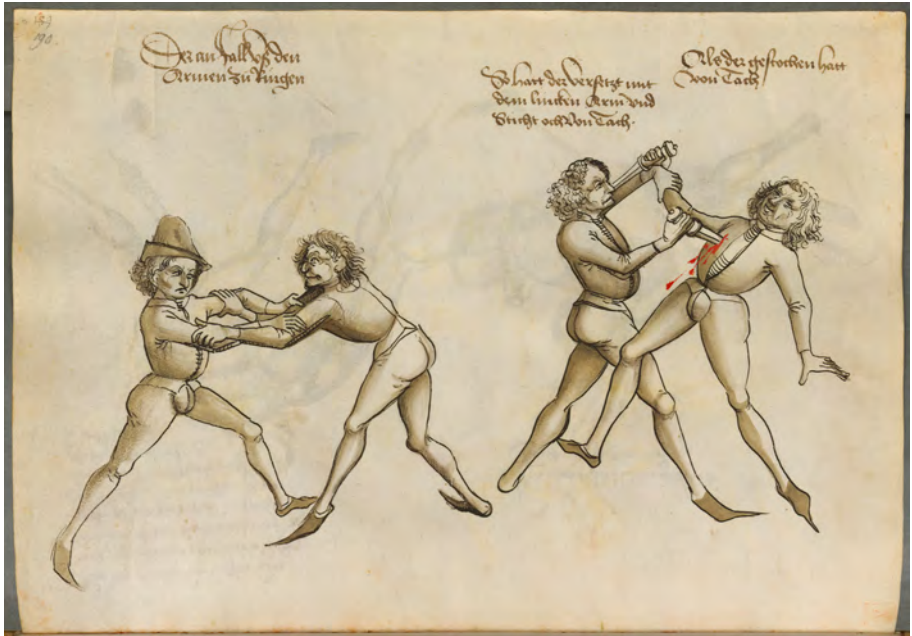 190
Der an fall vß den
Armen zu Ringen
So hatt der versetzt mit
dem lincken Arm vnd
Sticht och von Tach.
Als der gestochen hatt
von Tach